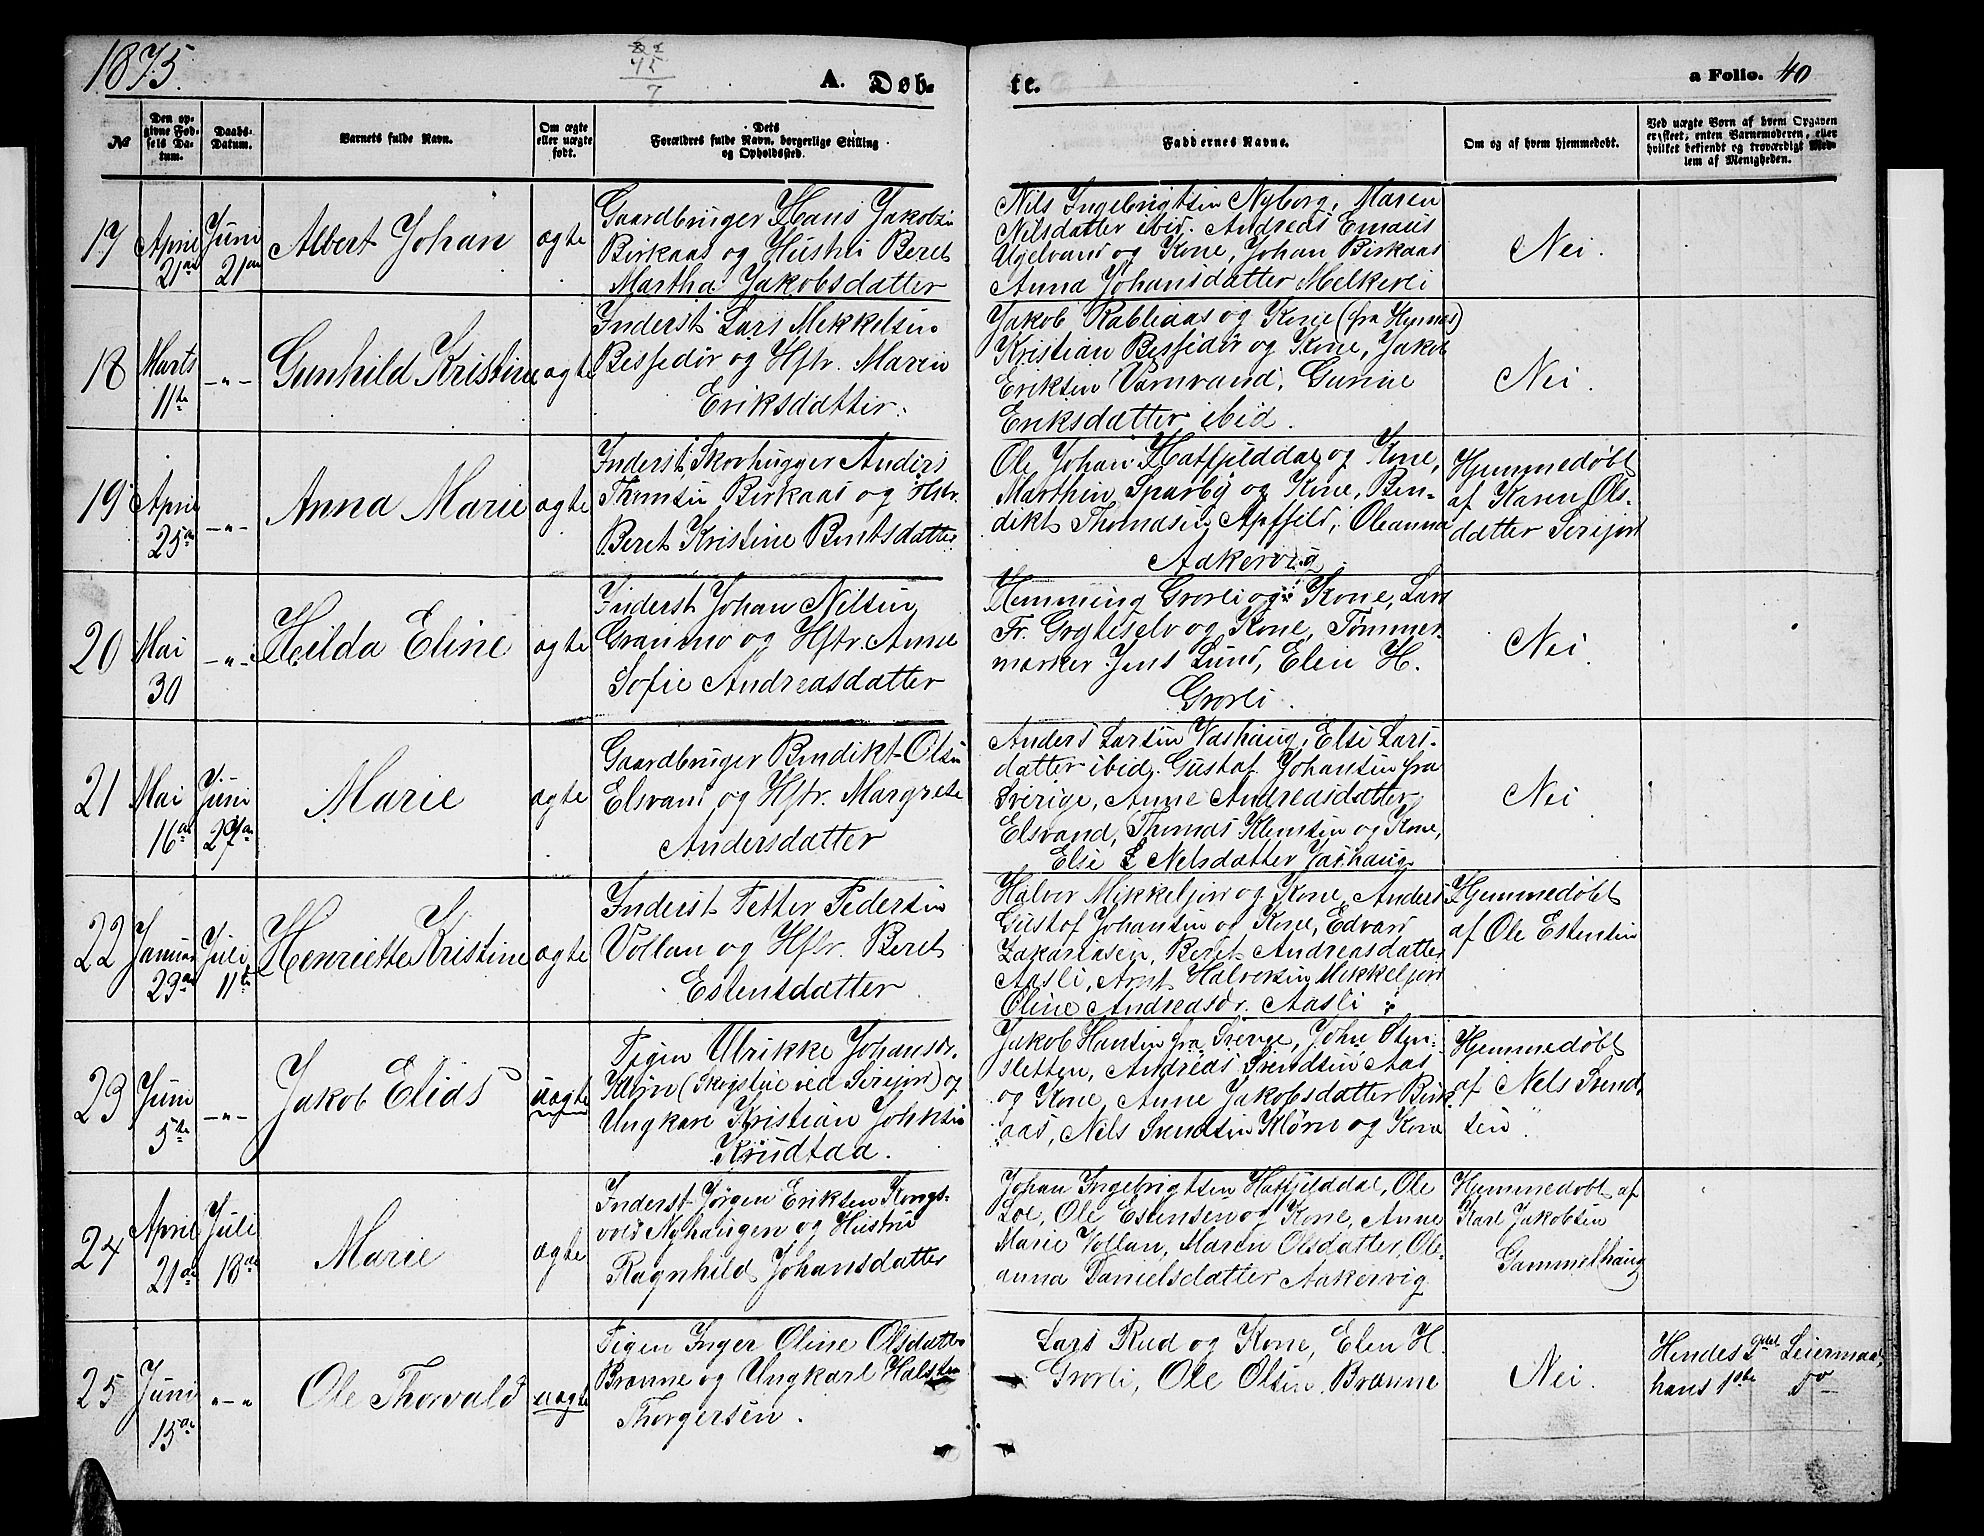 1875.
A. Døb-
te.
a Folio. 40
No
Den op-
givne Fød-
sels Da-
tum.
Daabs-
Datum.
Barnets fulde Navn.
Om ægte
eller uægte
født.
Dets
Forældres fulde Navn, borgerlige Stilling
og Opholdssted.
Faddernes Navne.
Om og af hvem hjemmedøbt.
Ved uægte Børn af hvem Opgaven
er skeet, enten Barnemoderen, eller
hvilket bekjendt og troværdigt Med-
lem af Menigheden.
17
April
21de
Juni
21de
Albert Johan
ægte
Gaardbruger Hans Jakobsen
Birkaas og Hustru Beret
Martha Jakobsdatter
Nils Ingebrigtsen Nyborg, Maren
Nilsdatter ibid. Andreas Emaus
Ugelvand og Kone, Johan Birkaas
Anna Johansdatter Melkerli
Nei.
18
Marts
11te
-"-
Gunhild Kristine
ægte
Inderst Lars Mikkelsen
Bessedør og Hstr. Maren
Eriksdatter.
Jakob og Kone (fra
Kristian Bessedør og Kone, Jakob
Eriksen Varnvand, Gurine
Eriksdatter ibid.
Nei.
19
April
25de
-"-
Anna Marie
ægte
Inderst, Skovhugger Anders
Thomsen Birkaas og Hstr.
Beret Kristine Bentsdatter
Ole Johan Hatfjelddal og Kone,
Marthin Sparby og Kone, Ben-
dikt Thomasen Apfjeld, Oleanna
Aakervig
Hjemmedøbt
af Karen Ols-
datter Serijord
20
Mai
30
-"-
Hilda Eline
ægte
Inderst Johan Nilsen
Granmo og Hstr. Anne
Sofie Andreasdatter
Hemming Grovli og Kone, Lars
Fr. Gryteselv og Kone, Tømmer-
mærker Jens Lund, Elen H.
Grovli.
Nei.
21
Mai
16de
Juni
27de
Marie
ægte
Gaardbruger Bendikt Olsen
Elsvand og Hstr. Margrete
Andersdatter
Anders Larsen Vashaug, Else Lars-
datter ibid. Gustaf Johansen fra
Sverige, Anne Andreasdatter
Elsvand, Thomas Klemtsen og Kone,
Else Nelsdatter Vashaug
Nei
22
Januar
29de
Juli
11te
Henriette Kristine
ægte
Inderst Petter Pedersen
Vollan og Hstr. Beret
Estensdatter
Halvor Mikkeljord og Kone, Anders
Gustaf Johansen og Kone, Edvard
Zakariasen, Beret Andreasdatter
Aasli, Arnt Halvorsen Mikkeljord
Oline Andreasdr. Aasli
Hjemmedøbt
af Ole Estensen
23
Juni
5te
-"-
Jakob Elias
uægte
Pigen Ulrikke Johansdr.
Kløvn (Skogstue ved Serijord) og
Ungkarl Kristian Johnsen
Krudtaa.
Jakob Hansen fra Sverige, John Sten-
sletten, Andreas Svendsen Aas
og Kone, Anne Jakobsdatter Birk-
aas, Nils Svendsen Kløvn og Kone
Hjemmedøbt
af Nels Svend-
sen.
24
April
21de
Juli
18de
Marie
ægte
Inderst Jørgen Eriksen Kongs-
vold Nyhaugen og Hustru
Ragnhild Johansdatter
Johan Ingebrigtsen Hatfjelddal, Ole
Loe, Ole Estensen og Kone, Anne
Marie Vollan, Maren Olsdatter, Ole-
anna Danielsdatter Aakervig
Hjemmedøbt af
Karl Jakobsen
Gammelhaug
25
Juni
15de
"-"
Ole Thorvald
uægte
Pigen Inger Oline Olsdatter
Brænne og Ungkarl Halsten
Thorgersen.
Lars Rud og Kone, Elen H.
Grovli, Ole Olsen Brænne
Nei.
Hendes 2det Leiermaal,
hans 1ste do